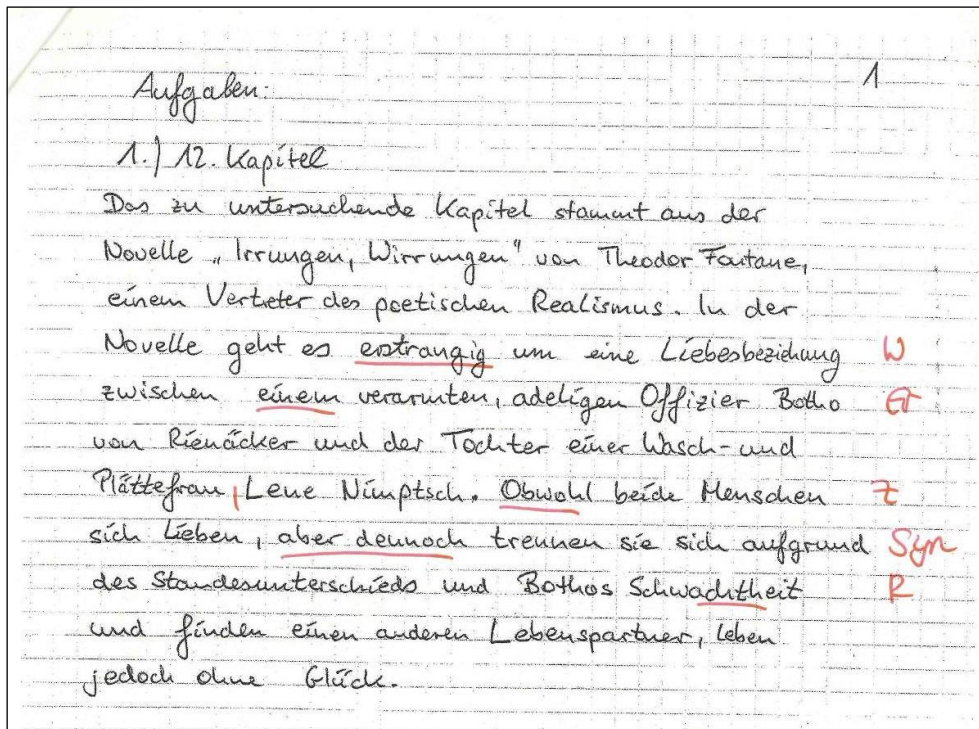 1
Aufgaben:
1.) 12. Kapitel
Das zu untersuchende Kapitel stammt aus der
Novelle „Irrungen, Wirrungen" von Theodor Fontane,
einem Vertreter des poetischen Realismus. In der
Novelle geht es erstrangig um eine Liebesbeziehung W
zwischen einem verarmten, adeligen Offizier Botho Gr
von Rienäcker und der Tochter einer Wasch- und
Plättefrau, Lene Nimptsch. Obwohl beide Menschen Z
sich Lieben, aber dennoch trennen sie sich aufgrund Syn
des Standesunterschieds und Bothos Schwachtheit R
und finden einen anderen Lebenspartner, leben
jedoch ohne Glück.